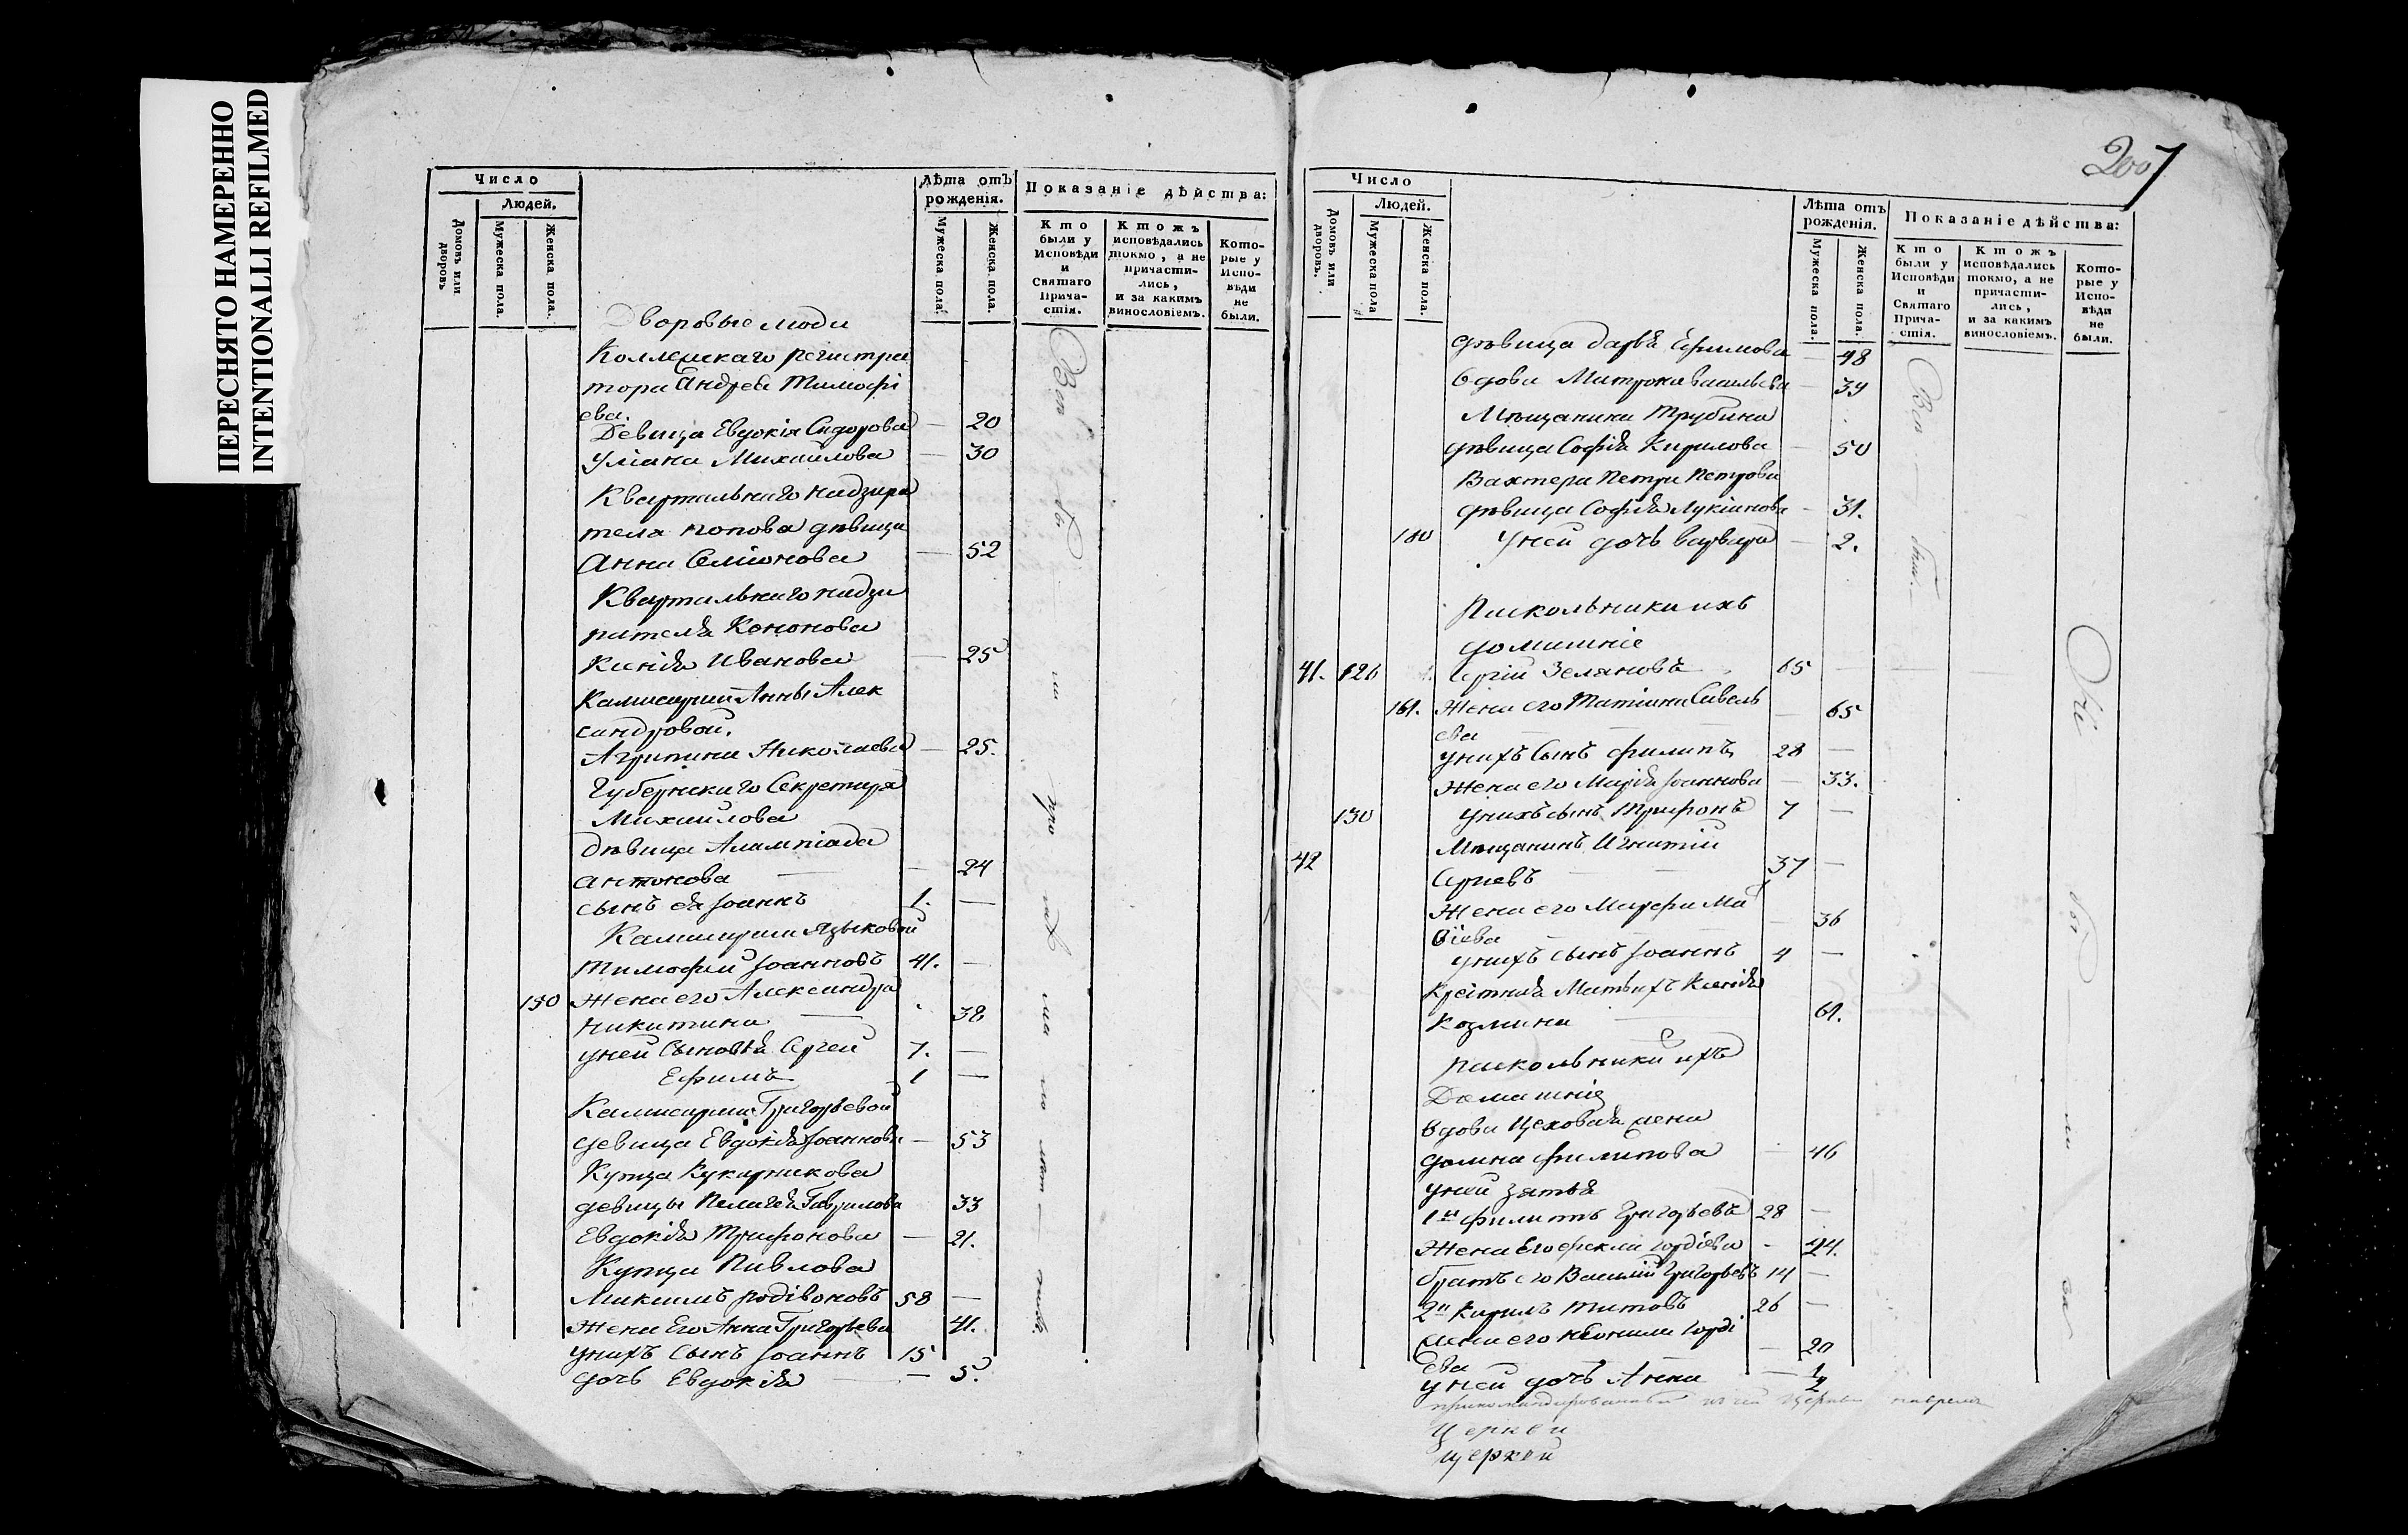 ПЕРЕСНЯТО НАМЕРЕННО
INTENTIONALLI REFILMED
Число
Людей.
Домовъ или дворовъ
Мужеска пола.
Женска пола.
Лѣта отъ рожденія.
Мужеска пола.
Женска пола.
Показаніе дѣйства:
Кто были у Исповѣди и Святаго Причастія.
Ктожъ исповѣдались токмо, а не причастились, и за какимъ винословіемъ.
Которые у Исповѣди не были.
Дворовые люди
Коллежскаго регистра
тора Андрея Тимофі
ева.
Девица Евдокія Сидорова — 20
Уліана Михаилова — 30
Квартальнаго надзира
теля попова дѣвица
Анна Семіонова — 52
Квартальнаго надзи
рателя Кононова
Ксенія Иванова — 25
Камисарши Анны Алек
сандровой.
Агрипина Николаева — 25.
Губернскаго Секретаря
Михаилова
Дѣвица Алампіада
антонова — 24
сынъ ея Іоаннъ 1. —
Камисарши Языковой
Тимофей Іоанновъ 41. —
130 Жена его Александра
никитина — 38
уней Сыновья Сергей 7. —
Ефимъ 1 —
Камисарши Григорьевой
девица Евдокія Іоаннова — 53
Купца Кукарникова
девицы Пелагея Гаврилова 33
Евдокія Трифонова — 21.
Купца Павлова
Максимъ родівоновъ 58 —
Жена Его Анна Григорьева 41.
унихъ Сынъ Іоаннъ 15
дочь Евдокія — 5.
2007
Число
Людей.
Домовъ или дворовъ.
Мужеска пола
Женска пола.
Лѣта отъ рожденія.
Мужеска пола.
Женска пола.
Показаніе дѣйства:
Кто были у Исповѣди и Святаго Причастія.
Ктожъ исповѣдались токмо, а не причастились, и за какимъ винословіемъ.
Которые у Исповѣди не были.
дѣвица дарья Ефимова — 48
вдова Матрона васильева — 39
Мѣщанина Трубина
дѣвица Софія Кирилова — 50
Вахтера Петра Петрова
дѣвица Софія Лукіанова — 31.
180 Уней дочь варвара — 2.
Раскольники ихъ
домашніе
41. 126 Сергій Зеляновъ 65 —
161. Жена его Татіана Савель
ева — 65
унихъ Сынъ филипъ 28 —
Жена его Марія Іоаннова — 33.
130 Унихъ сынъ Трифонъ 7 —
42 Мѣщанинъ Игнатій
Сергіевъ 37 —
Жена его Марфа Ма
ѳіева — 36
унихъ сынъ Іоаннъ 4 —
Мать ихъ Ксенія
Козмина 61.
раскольники ихъ
Домашніе
вдова Цеховая
домна филипова — 46
уней зятья
1й филипъ Григорьевъ 28 —
Жена Его фекла гордіева - 24.
братъ его Василій Григорьевъ 14 —
2й Кирилъ Титовъ 26 —
жена его неонила горді
ева — 20
уней дочь Анна — 1/2
Церкви
церкви